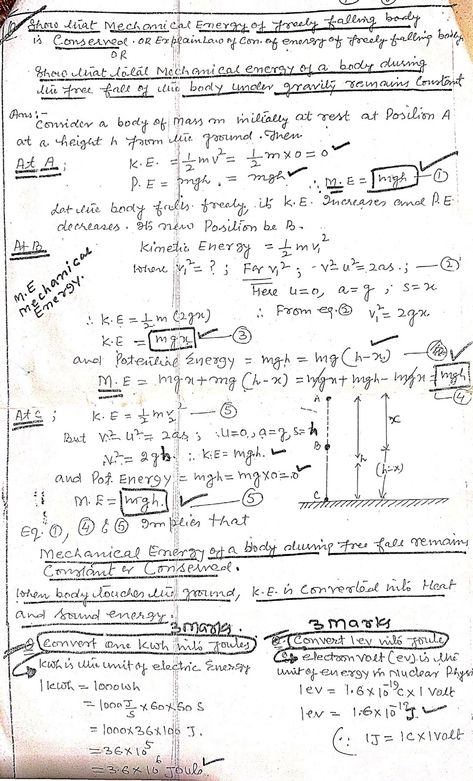 Show that Mechanical Energy of freely falling body
is Conserved. OR Explain Law of Con. of energy of freely falling body
OR
Show that Total Mechanical energy of a body during
the free fall of the body under gravity remains Constant
Ans:- Consider a body of mass m initially at rest at Position A
at a height h from the ground. Then
At A; K.E. = 1/2 mv² = 1/2 m×0 = 0
P.E = mgh. = mgh ∴ M.E = mgh ①
Let the body falls freely, its K.E. Increases and P.E
decreases. Its new Position be B.
At B Kinetic Energy = 1/2 mv₁²
M.E Mechanical Energy.
Where v₁² = ? ; For v₁² ; v²-u² = 2as ; — ②
Here u=0, a=g, s=x
∴ K.E = 1/2 m (2gx) ∴ From eq. ② v₁² = 2gx
K.E = mgx ③
and Potential Energy = mgh = mg (h-x)
M.E = mgx + mg (h-x) = mgx + mgh - mgx = mgh
④
At C; K.E = 1/2 mv₂² — ⑤
But v²-u² = 2as ; u=0, a=g, s=h
v₂² = 2gh ∴ K.E = mgh.
and Pot. Energy = mgh = mg×0 = 0
M.E = mgh. ⑤
A
x
B
h
(h-x)
C
Eq. ①, ④ & ⑤ Implies that
Mechanical Energy of a body during free fall remains
Constant or Conserved.
When body touches the ground, K.E. is Converted into Heat
and sound energy.
3 Marks
Convert one kwh into Joules
kwh is the unit of electric Energy
1 kwh = 1000 wh
= 1000 J/S × 60×60 S
= 1000×36×100 J.
= 36×10⁵
= 3.6×10⁶ Joule
3 Marks
Convert 1ev into Joule
electron volt (ev) is the
unit of energy in Nuclear Phys
1ev = 1.6×10⁻¹⁹ C × 1 Volt
1ev = 1.6×10⁻¹⁹ J
(∵ 1J = 1C × 1 Volt